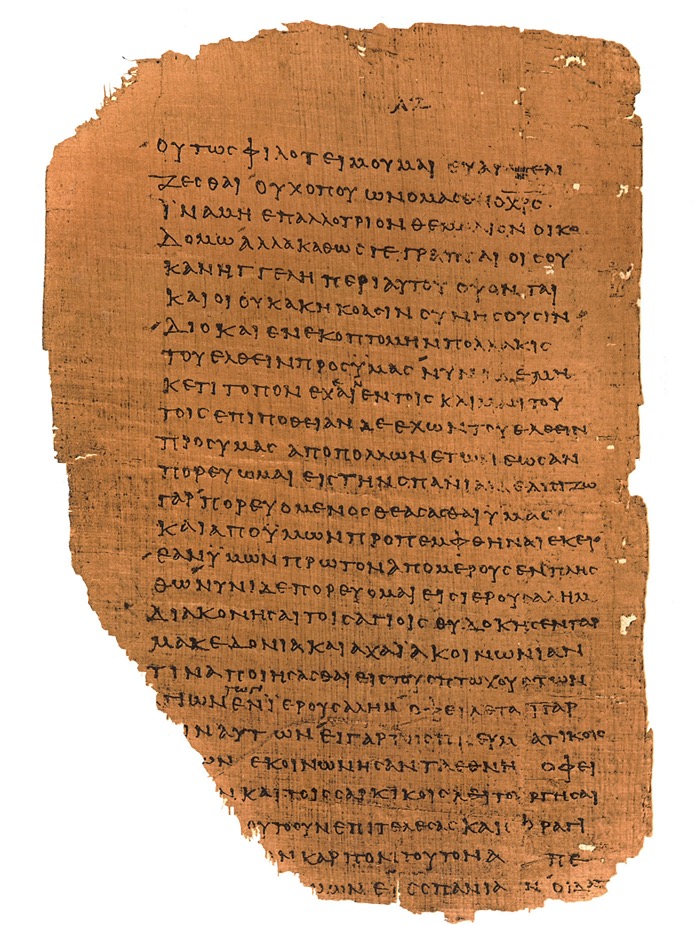 ΟΥΤΩϹΦΙΛΟΤΕΙΜΟΥΜΑΙ ΕΥΑΓΓΕΛΙ
ΖΕϹΘΑΙ ΟΥΧΟΠΟΥ ΩΝΟΜΑϹΘΗΟΧΡϹ
ΙΝΑΜΗ ΕΠΑΛΛΟΤΡΙΟΝΘΕΜΕΛΙΟΝ ΟΙΚΟ
ΔΟΜΩ ΑΛΛΑΚΑΘΩϹΓΕΓΡΑΠΤΑΙ ΟΙϹΟΥ
ΚΑΝΗΓΓΕΛΗ ΠΕΡΙΑΥΤΟΥ ΟΨΟΝΤΑΙ
ΚΑΙΟΙ ΟΥΚΑΚΗΚΟΑϹΙΝ ϹΥΝΗϹΟΥϹΙΝ
ΔΙΟΚΑΙΕΝΕΚΟΠΤΟΜΗΝΠΟΛΛΑΚΙϹ
ΤΟΥΕΛΘΕΙΝΠΡΟϹΥΜΑϹ ΝΥΝΙΔΕΜΗ
ΚΕΤΙΤΟΠΟΝ ΕΝΤΟΙϹ ΤΟΥ
ΤΟΙϹΕΠΙΠΟΘΕΙΑΝΔΕΕΧΩΝΤΟΥΕΛΘΕΙΝ
ΠΡΟϹΥΜΑϹ ΑΠΟΠΟΛΛΩΝΕΤΩΝ ΕΩϹΑΝ
ΠΟΡΕΥΩΜΑΙ ΕΙϹΤΗΝϹΠΑΝΙΑΝ ΕΛΠΙΖΩ
ΓΑΡ ΠΟΡΕΥΟΜΕΝΟϹΘΕΑϹΑϹΘΑΙΥΜΑϹ
ΚΑΙΑΠΟΥΜΩΝΠΡΟΠΕΜΦΘΗΝΑΙΕΚΕΙ
ΕΑΝΥΜΩΝΠΡΩΤΟΝΑΠΟΜΕΡΟΥϹΕΝΠΛΗϹ
ΘΩΝΥΝΙΔΕΠΟΡΕΥΟΜΑΙΕΙϹΙΕΡΟΥϹΑΛΗΜ
ΔΙΑΚΟΝΗϹΑΙΤΟΙϹΑΓΙΟΙϹ ΗΥΔΟΚΗϹΕΝΓΑΡ
ΜΑΚΕΔΟΝΙΑΚΑΙΑΧΑΙΑΚΟΙΝΩΝΙΑΝ
ΤΙΝΑΠΟΙΗϹΑϹΘΑΙΕΙϹΤΟΥϹΠΤΩΧΟΥϹΤΩΝ
ΓΙΩΝΕΝΙΕΡΟΥϹΑΛΗΜ ΟΦΕΙΛΕΤΑΙΓΑΡ
ΙΝΑΥΤΩΝΕΙΓΑΡΤΟΙϹΠΝΕΥΜΑΤΙΚΟΙϹ
ΩΝ ΕΚΟΙΝΩΝΗϹΑΝΤΑΕΘΝΗ ΟΦΕΙ
Ν ΚΑΙΤΟΙϹϹΑΡΚΙΚΟΙϹΛΕΙΤΟΥΡΓΗϹΑΙ
ΟΥΤΟΟΥΝΕΠΙΤΕΛΕϹΑϹ ΚΑΙ ϹΦΡΑΓΙ
Ν ΚΑΡΠΟΝΤΟΥΤΟΝΑΠΕ
ΥΜΩΝ ΕΙϹϹΠΑΝΙΑΝ ΟΙΔΑ